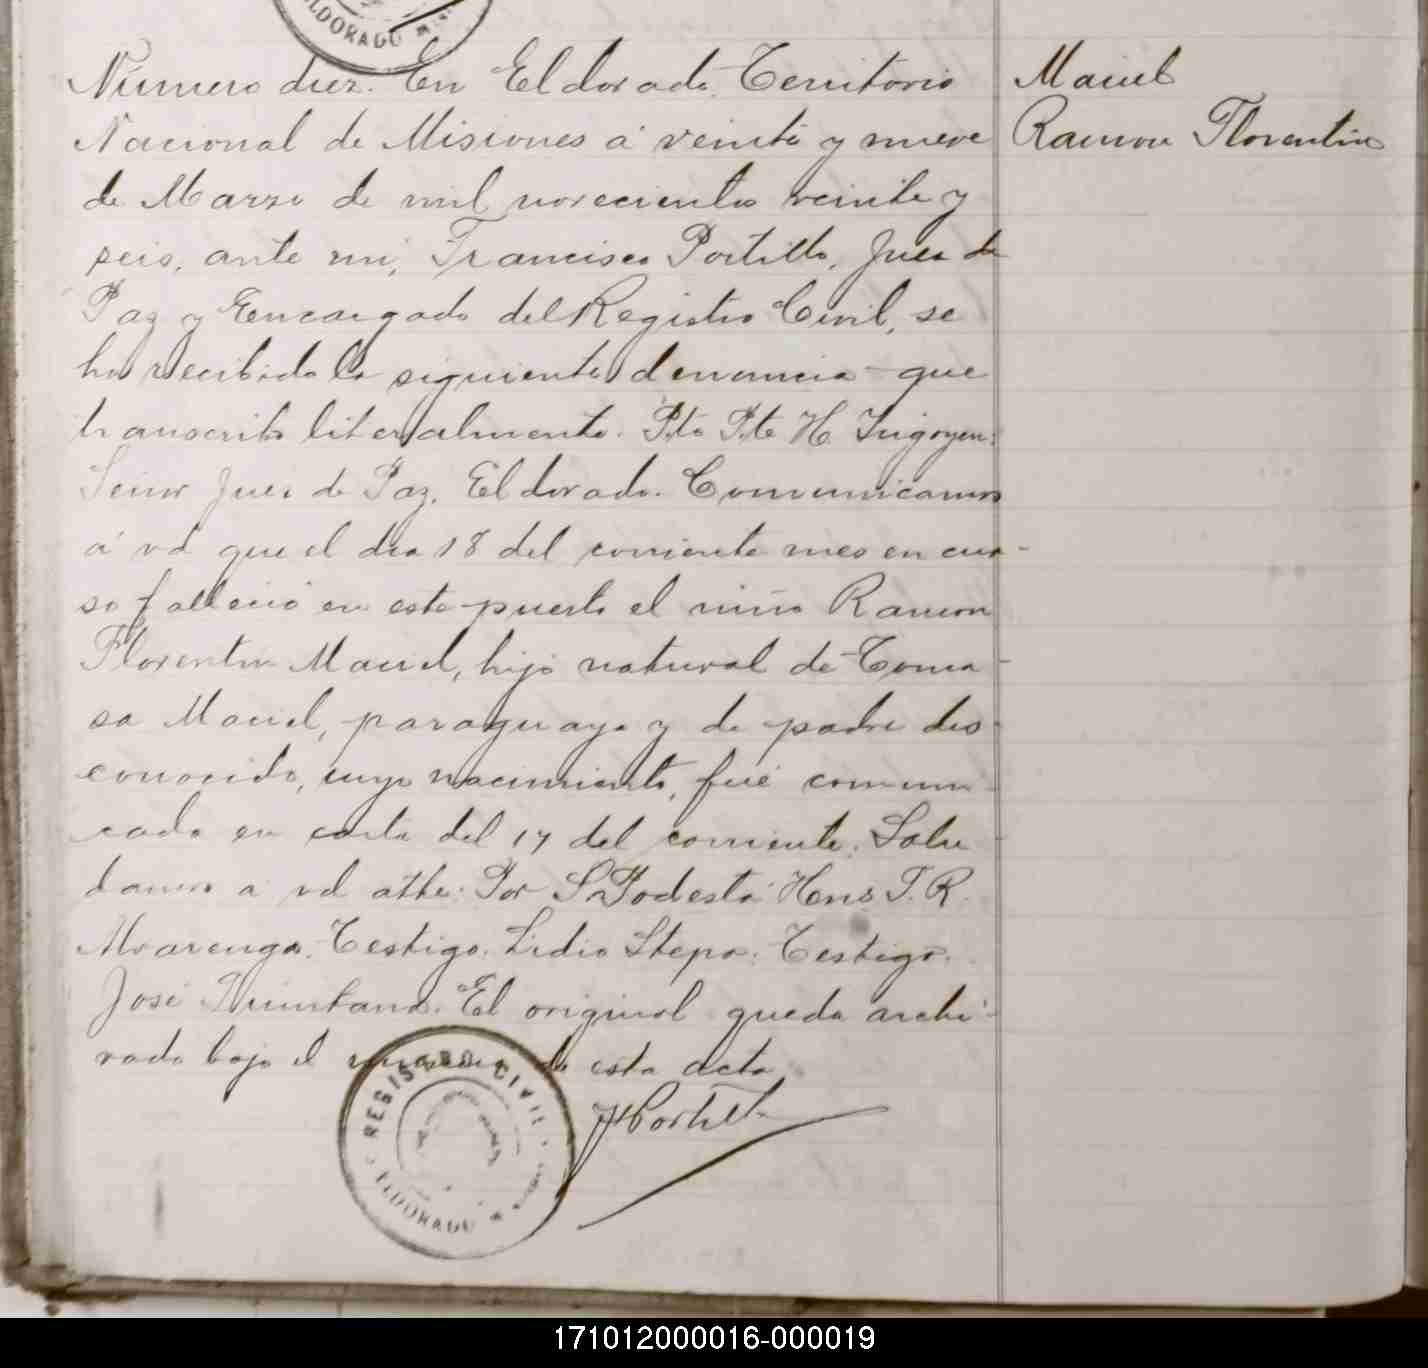 ELDORADO
Numero diez. En Eldorado, Territorio
Nacional de Misiones á veinte y nueve
de Marzo de mil novecientos veinte y
seis, ante mi, Francisco Portillo, Juez de
Paz y Encargado del Registro Civil, se
ha recibido la siguiente denuncia que
transcribo literalmente. Pto Pte H. Irigoyen:
Señor Juez de Paz. Eldorado. Comunicamos
á vd que el dia 18 del corriente mes en cur-
so falleció en este puerto el niño Ramon
Florentin Maciel, hijo natural de Toma-
sa Maciel, paraguaya y de padre des-
conocido, cuyo nacimiento, fué comuni-
cado en carta del 17 del corriente. Salu-
damos á vd atte: Por S. Podestá Hnos T. R.
Testigo. Lidio Testigo.
José Quintana. El original queda archi-
vado bajo el numero de esta acta
FPortillo
REGISTRO CIVIL
ELDORADO
Maciel
Ramon Florentin
171012000016-000019